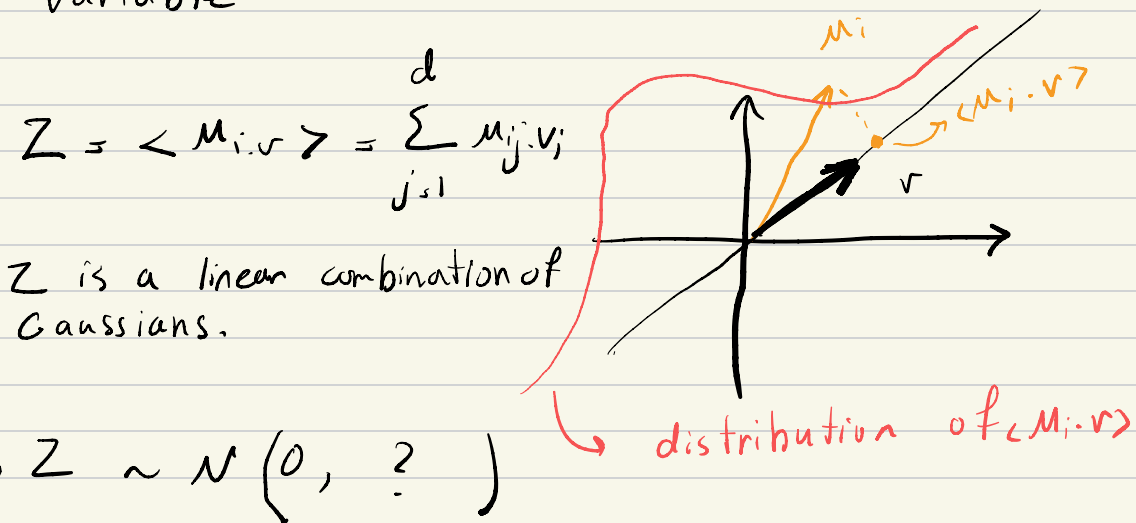 variable
d
Z = < μi.v > = Σ μij.vj
j=1
Z is a linear combination of
Gaussians.
Z ~ N (0, ?)
μi
<μi.v>
v
distribution of <μi.v>